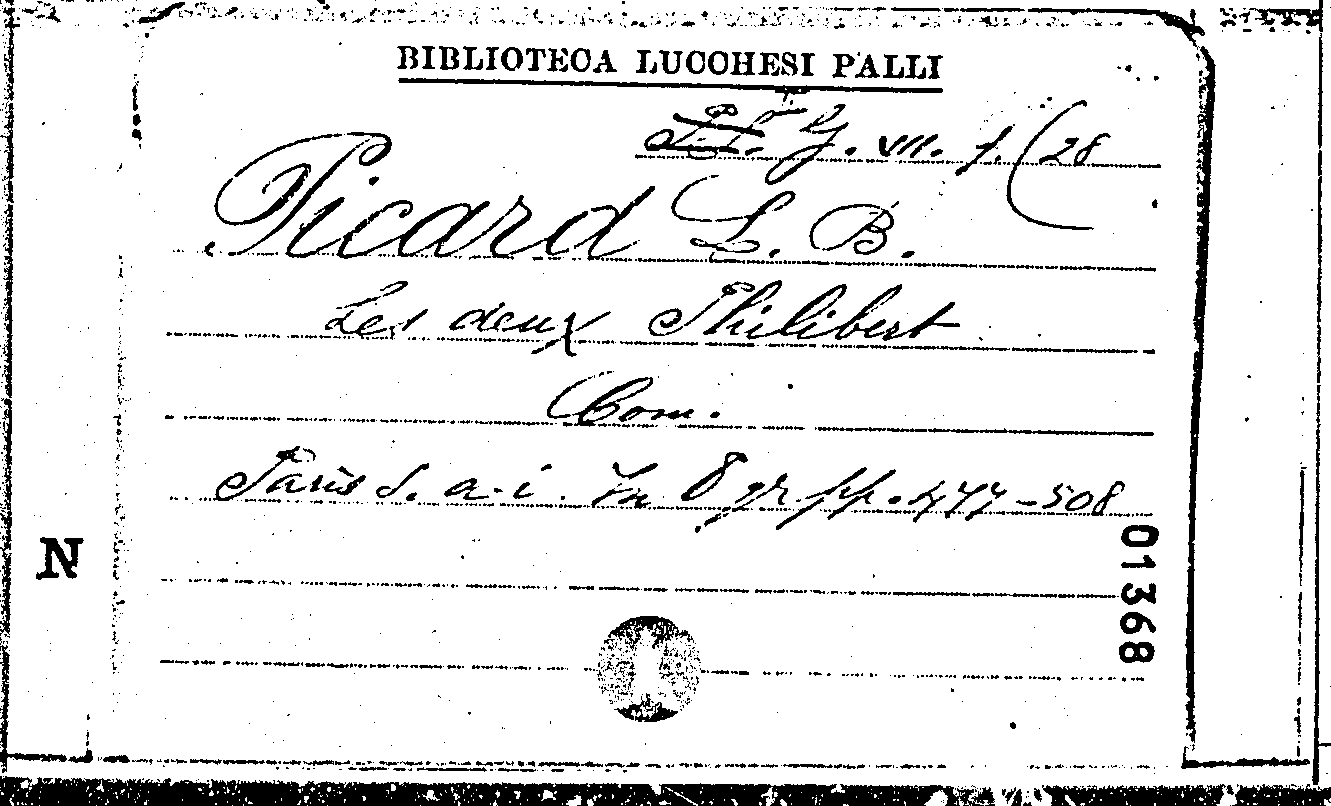 BIBLIOTECA LUCCHESI PALLI
VII. f. (28
Picard L. B.
Les deux Philibert
Com.
Paris s. a. i. In 8 gr pp. 477-508
N
01368